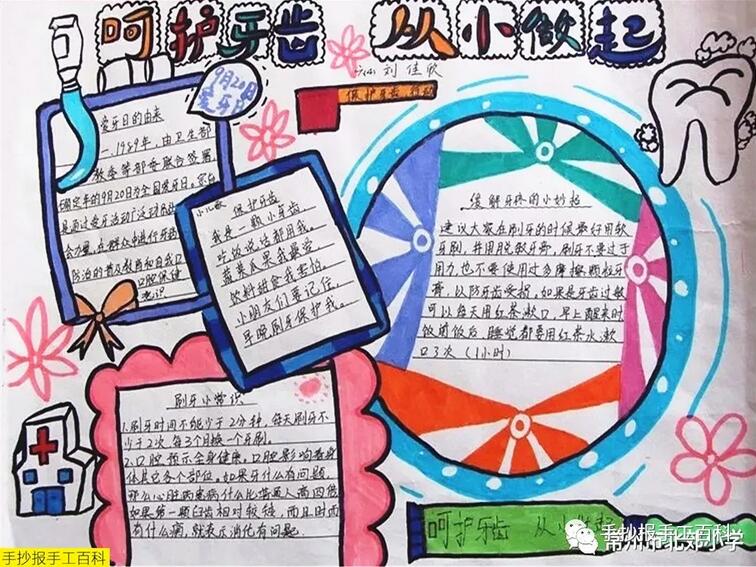 呵护牙齿 从小做起
六(4) 刘佳欣
9月20日
爱牙日
爱牙日的由来
一1989年,由卫生部
教委等部委联合签署,
确定每年的9月20日为全国爱牙日。宗旨
是通过爱牙活动广泛动员社
会力量,在群众中进行牙病
防治的普及教育和自我口
口腔保健
意识
小儿歌 保护牙齿
我是一颗小牙齿,
吃饭说话都用我。
蔬菜瓜果我最爱
饮料甜食我害怕
小朋友们要记住,
早晚刷牙保护我。
缓解牙疼的小妙招
建议大家在刷牙的时候最好用软
毛刷,并用脱敏牙膏,刷牙不要过于
用力,也不要使用过多摩擦颗粒牙
膏,以防牙齿受损,如果是牙齿过敏
可以每天用红茶漱口,早上醒来时
饭前饭后,睡觉都要用红茶水漱
口3次(1小时)
刷牙小常识
1.刷牙时间不能少于2分钟,每天刷牙不
少于2次,每3个月换一个牙刷。
2.口腔预示全身健康。口腔影响着身
体其它多个部位。如果牙什么有问题,
那么心脏病患病什么比普通人高四倍
如果第一颗臼齿相对较
有什么病,就表示消化有问题.
呵护牙齿 从小做起
手抄报手工百科
常州市北郊小学
手抄报手工百科